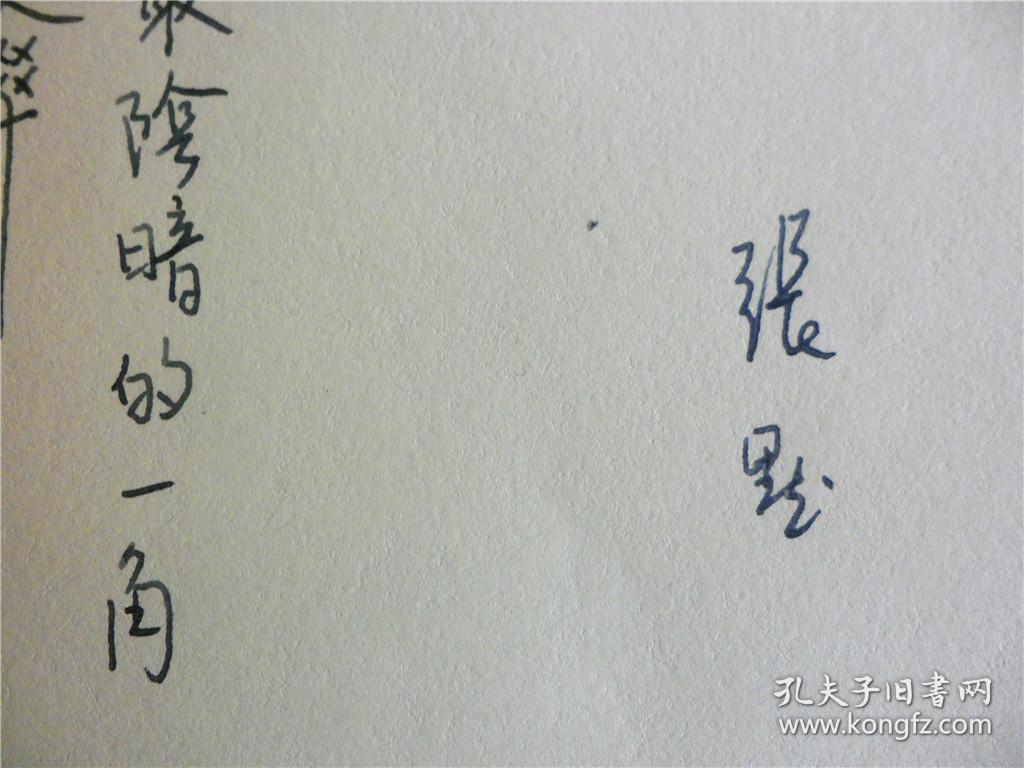 張默
最陰暗的一角
孔夫子旧書网
www.kongfz.com